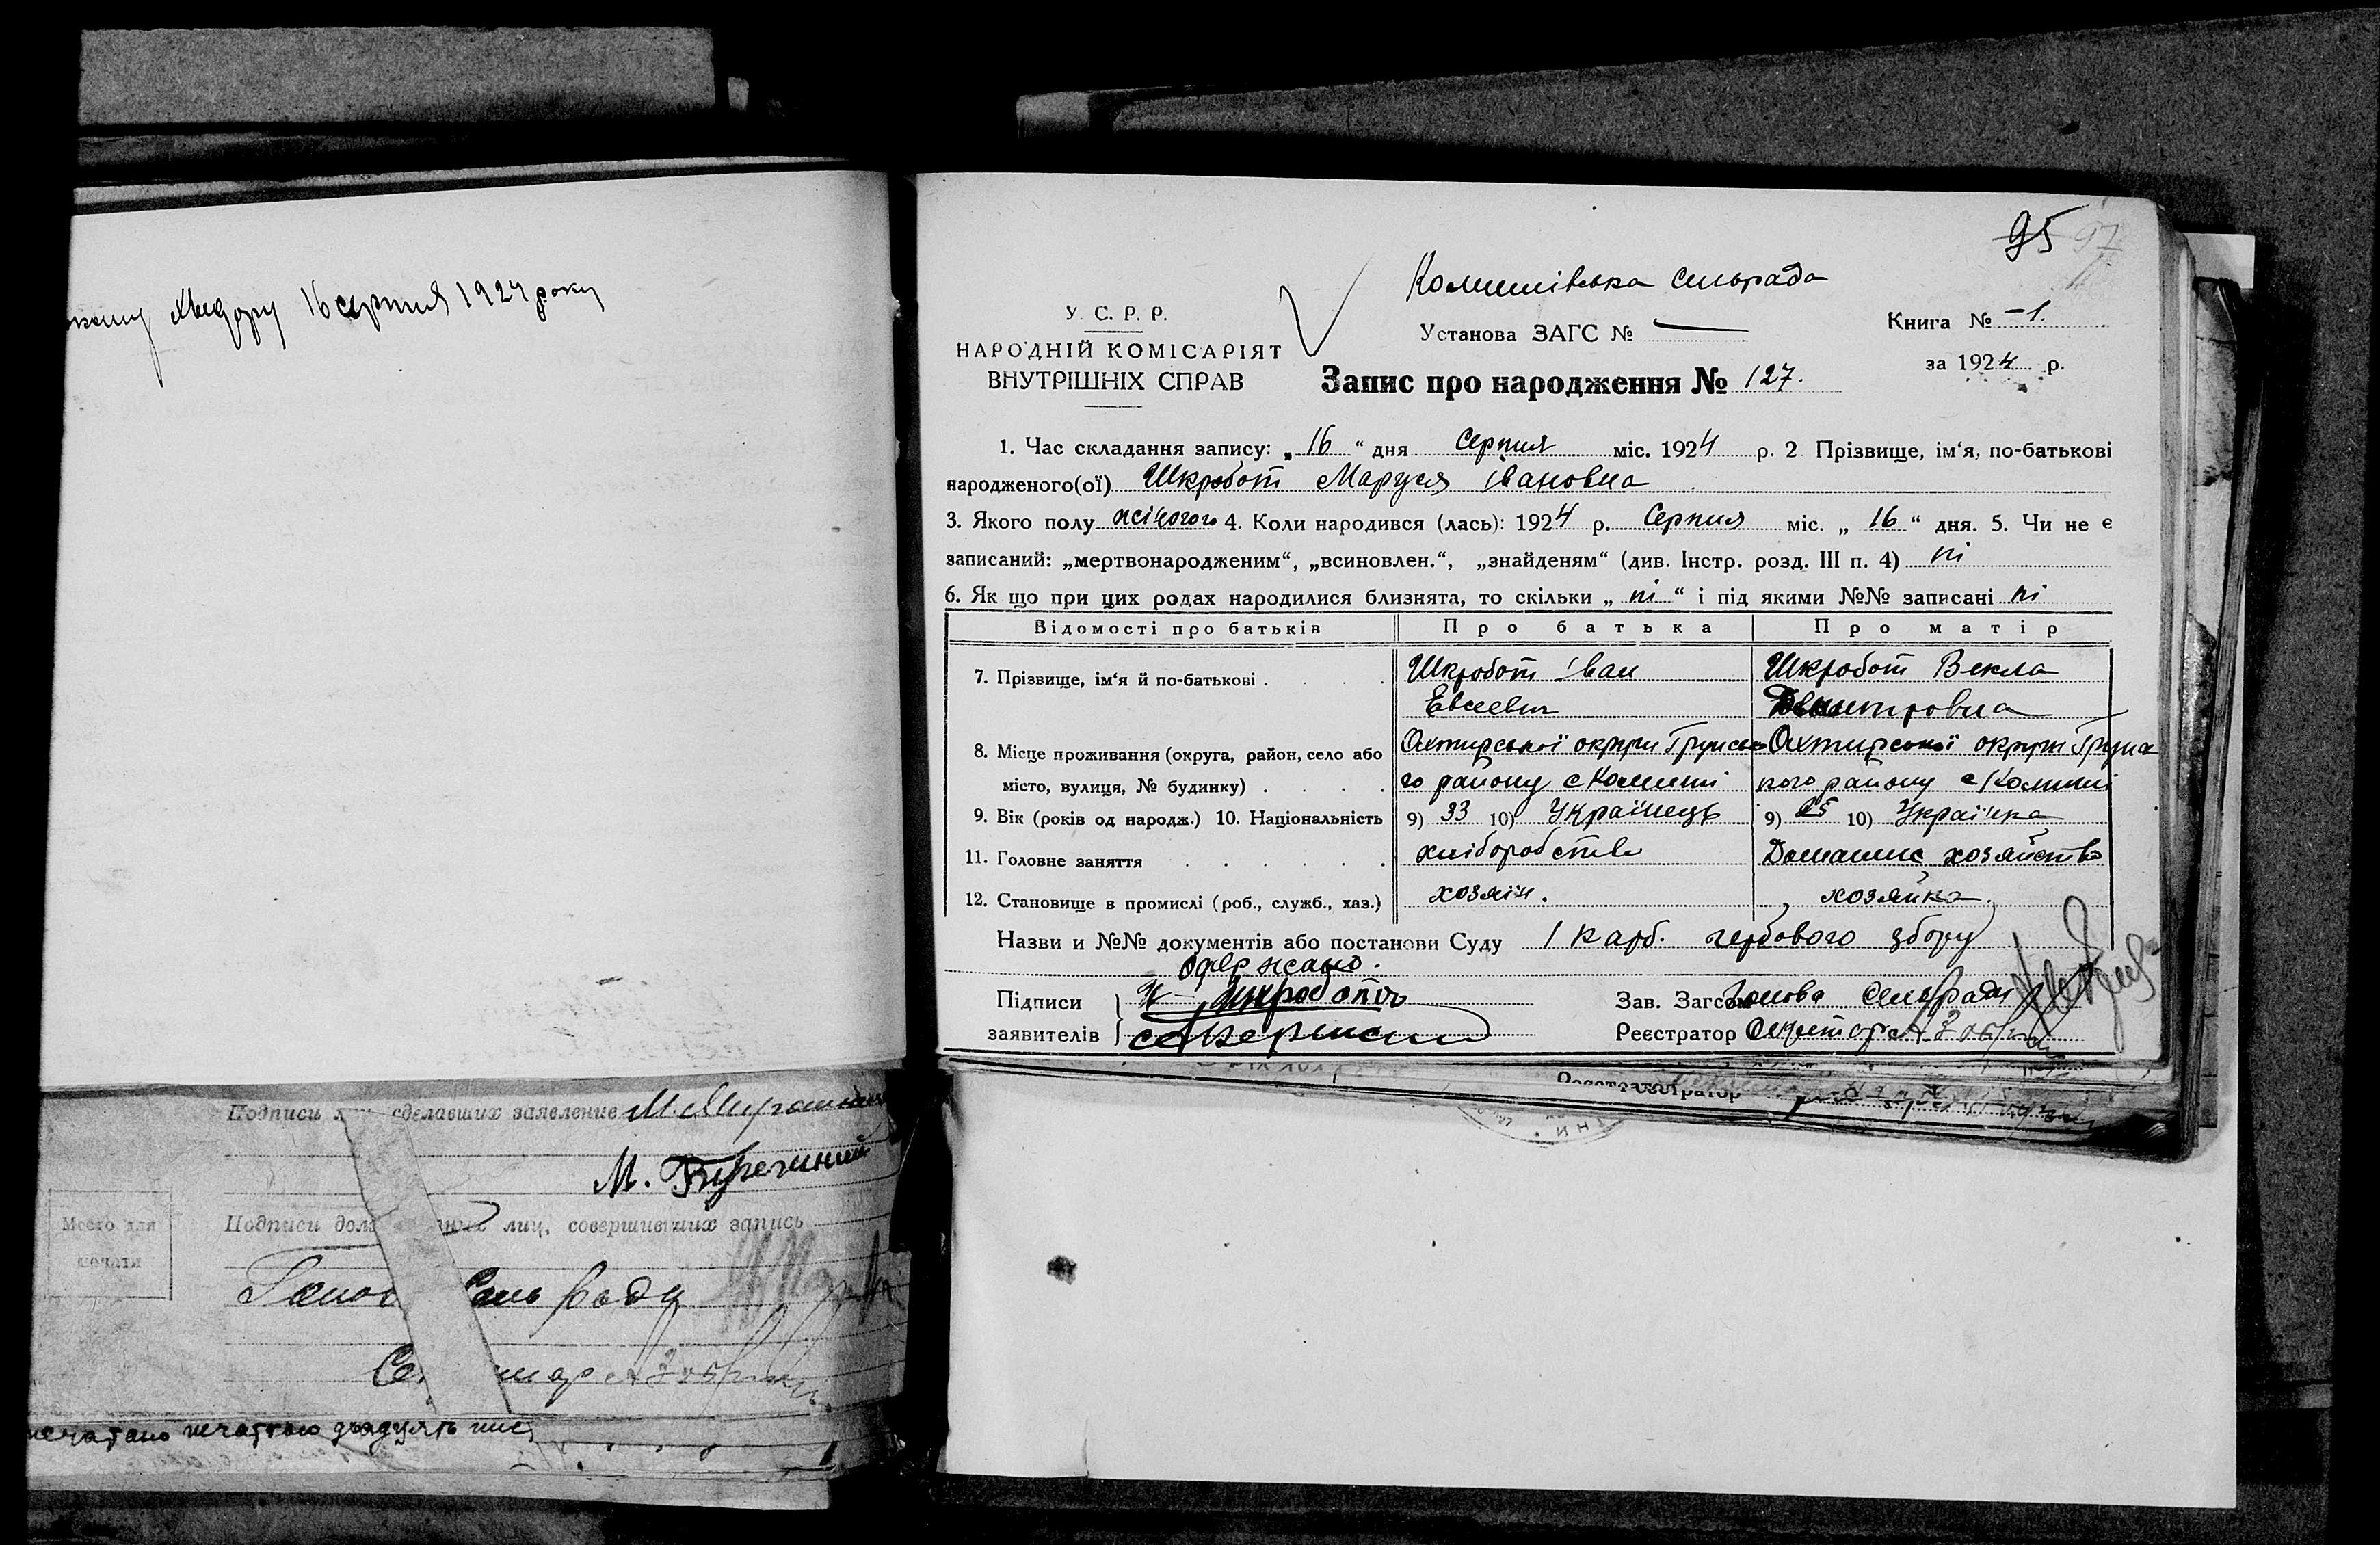 Хведору 16 серпня 1924 року
95 97
Комишівська сильрада
У. С. Р. Р.
НАРОДНІЙ КОМІСАРІЯТ
ВНУТРІШНІХ СПРАВ
Установа ЗАГС № —
Книга № – 1.
за 1924 р.
Запис про народження № 127.
1. Час складання запису: „ 16 “ дня Серпня міс. 1924 р. 2 Прізвище, ім‘я, по-батькові
народженого(ої) Шкробот Маруся Івановна
3. Якого полу жіночого 4. Коли народився (лась): 1924 р. Серпня міс. „ 16 “ дня. 5. Чи не є
записаний: „мертвонародженим“, „всиновлен.“, „знайденям“ (див. Інстр. розд. III п. 4) ні
6. Як що при цих родах народилися близнята, то скільки „ ні “ і під якими №№ записані ні
Відомості про батьків Про батька Про матір
7. Прізвище, ім‘я й по-батькові . . . . Шкробот Іван Шкробот Векла
Евсеевич Дмитровна
8. Місце проживання (округа, район, село або Охтирської округи Грунсько Охтирської округи Грунс
місто, вулиця, № будинку) . . . . го району с Комиші кого району с Комиші
9. Вік (років од народж.) 10. Національність 9) 33 10) Українець 9) 25 10) Українка
11. Головне заняття . . . . . . хліборобство Домашнє хозяйство
12. Становище в промислі (роб., служб., хаз.) хозяін. хозяйка.
Назви и №№ документів або постанови Суду 1 карб. гербового збору
одержано.
Підписи Шкроботъ Зав. Загсом Голова Сельради
заявителів Реєстратор Секретар
Реєстратор
Подписи сделавших заявление М.
М.
Место для
печати
Подписи лиц, совершивших запись
Сель Рады
печатано печаткою двадцять